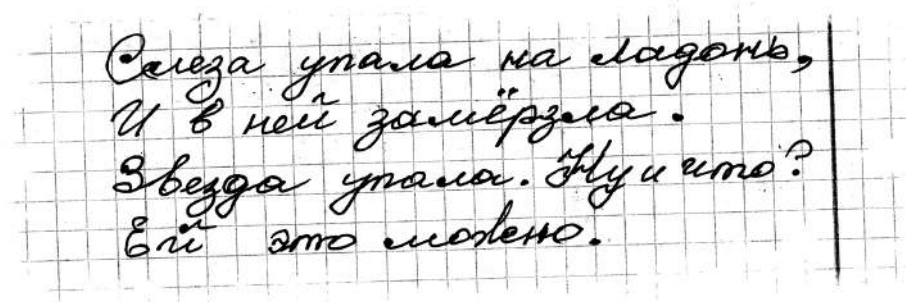 Слеза упала на ладонь,
И в ней замёрзла.
Звезда упала. Ну и что?
Ей это можно.